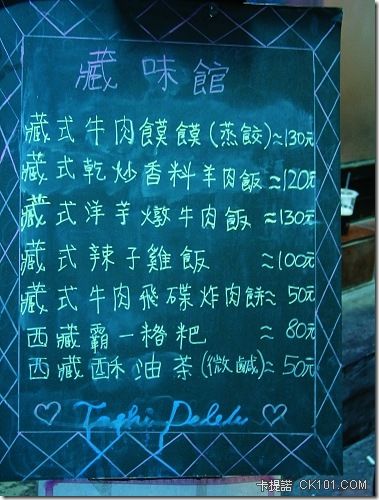 藏味館
藏式牛肉饃饃(蒸餃)≈130元
藏式乾炒香料羊肉飯≈120元
藏式洋芋燉牛肉飯≈130元
藏式辣子雞飯≈100元
藏式牛肉飛碟炸肉餅≈50元
西藏霸一糌粑≈80元
西藏酥油茶(微鹹)≈50元
♡ Tashi Delek ♡
卡提諾 CK101.com